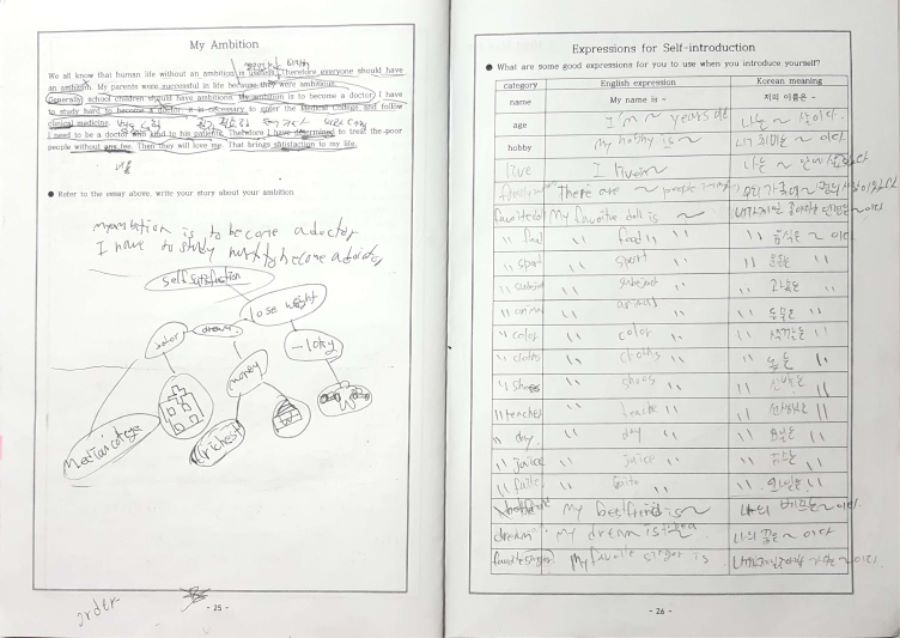 My Ambition
We all know that human life without an ambition is useless. Therefore everyone should have
an ambition. My parents were successful in life because they were ambitious.
Generally school children should have ambitions. My ambition is to become a doctor. I have
to study hard to become a doctor. It is necessary to enter the Medical College, and follow
clinical medicine.
I need to be a doctor who kind to his patients. Therefore I have determined to treat the poor
people without any fee. Then they will love me. That brings satisfaction to my life.
● Refer to the essay above, write your story about your ambition
my ambition is to become a doctor
I have to study hard to become a doctor
self satisfaction
lose weight
dream
doctor
- 10kg
money
richest
order
- 25 -
Expressions for Self-introduction
● What are some good expressions for you to use when you introduce yourself?
category English expression Korean meaning
name My name is ~ 저의 이름은 ~
age I'm ~ years old 나는 ~ 살이다.
hobby My hobby is ~ 내 취미는 ~ 이다
live I live in ~ 나는 ~ 안에 산다
There are ~ people
favorite doll My favorite doll is ~
" food " food " " 음식은 ~ 이다
" sport " sport " " 운동은 "
" " subject " " 과목은 "
" " animal " " 동물은 "
" color " color " " 색깔은 "
" cloths " cloths " " 옷은 "
" shoes " shoes " " 신발은 "
" teacher " teache " " 선생님은 "
" day " day " "
" juice " juice " "
" " " "
My best friend is ~ 나의 베프는 ~ 이다.
dream My dream is 나의 꿈은 ~ 이다
favorite singer My favorite singer is
- 26 -